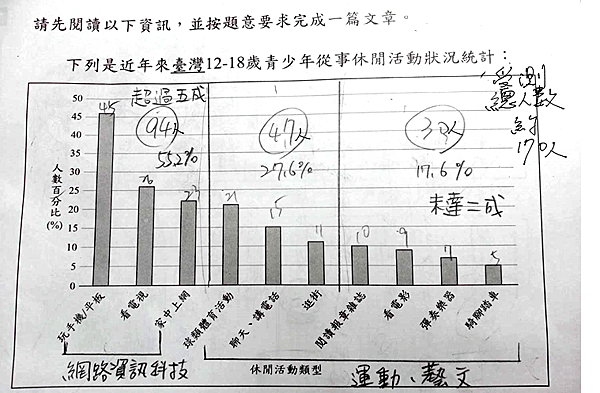 請先閱讀以下資訊，並按題意要求完成一篇文章。
下列是近年來臺灣12-18歲青少年從事休閒活動狀況統計：
受測
總人數
約
170人
超過五成
94人
55.2%
47人
27.6%
30人
17.6%
未達二成
人數百分比(%)
50
45
40
35
30
25
20
15
10
5
0
45
26
23
21
15
11
10
9
7
5
玩手機/平板
看電視
家中上網
球類體育活動
聊天、講電話
逛街
閱讀報章雜誌
看電影
彈奏樂器
騎腳踏車
網路資訊科技
休閒活動類型
運動、藝文